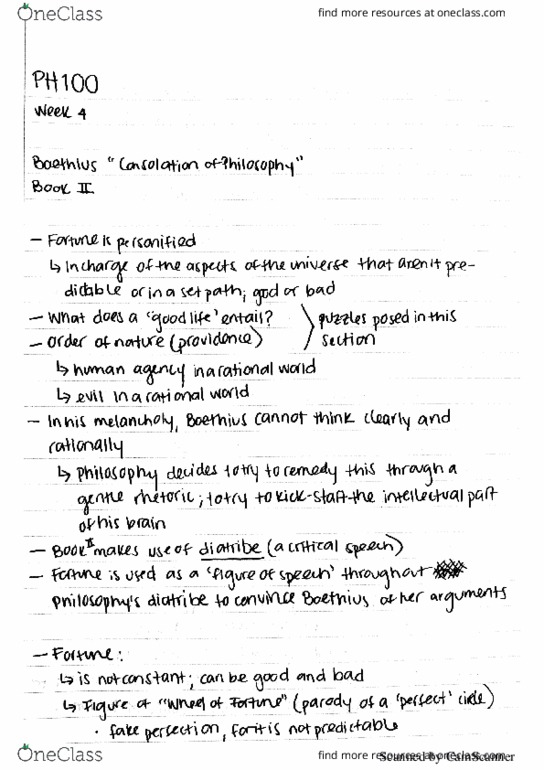 OneClass
find more resources at oneclass.com
PH100
Week 4
Boethius "Consolation of Philosophy"
Book II
- Fortune is personified
↳ In charge of the aspects of the universe that aren't pre-
dictable or in a set path; good or bad
- What does a 'good life' entail? puzzles posed in this
- Order of nature (providence) section
↳ human agency in a rational world
↳ evil in a rational world
- In his melancholy, Boethius cannot think clearly and
rationally
↳ Philosophy decides to try to remedy this through a
gentle rhetoric; to try to kick-start the intellectual part
of his brain
- Book II makes use of diatribe (a critical speech)
- Fortune is used as a 'figure of speech' throughout
Philosophy's diatribe to convince Boethius of her arguments
- Fortune:
↳ is not constant; can be good and bad
↳ Figure of "Wheel of Fortune" (parody of a 'perfect' circle)
· fake perfection, for it is not predictable
OneClass
find more resources at oneclass.com
Scanned by CamScanner